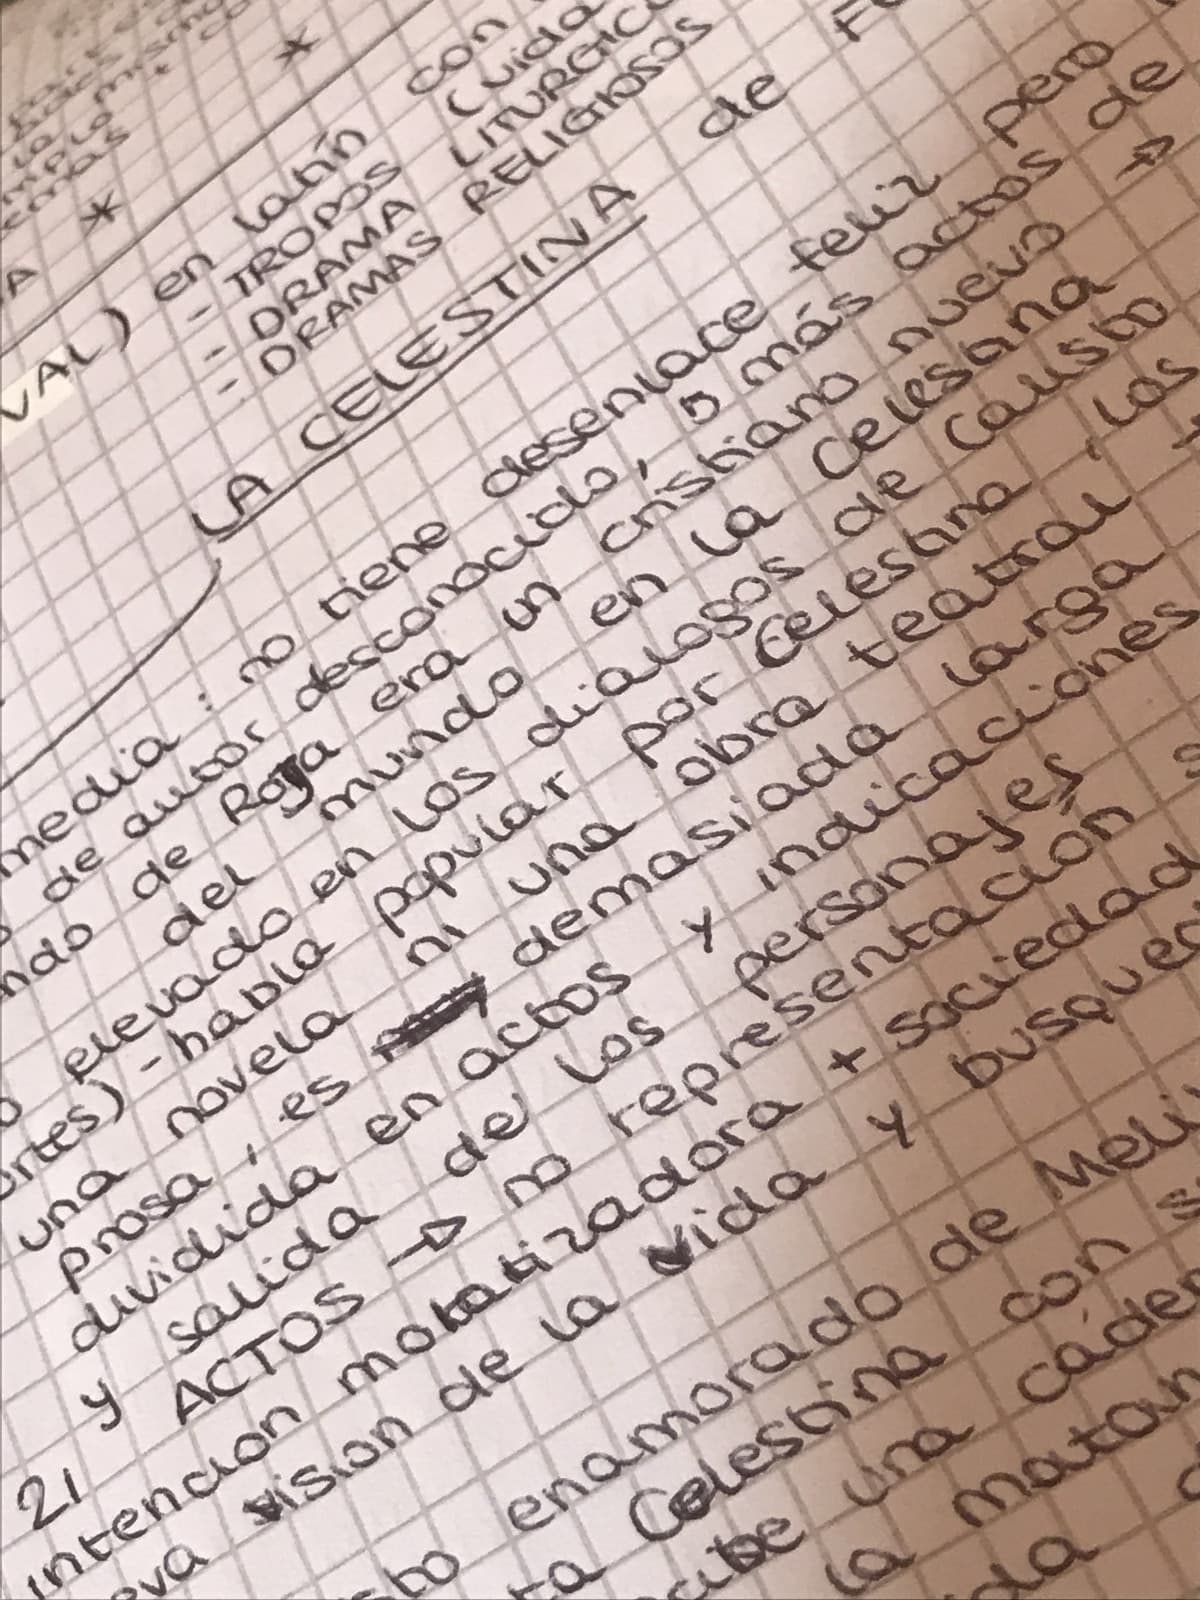 *
*
VAL) en latín con
- TROPOS (vida
- DRAMA LITURGIC
- DRAMAS RELIGIOSOS
LA CELESTINA de
media : no tiene desenlace feliz pero
de autor desconocido, y más actos de
ndo de Roja era un cristiano nuevo →
del mundo en la Celestina
elevado en los dialogos de Calisto
ertes) - habla popular por Celestina, los
una novela ni una obra teatral
prosa, es demasiada larga
dividida en actos y indicaciones
y salida de los personajes
21 ACTOS → no representación s
intencion moralizadora + sociedad
eva vision de la vida y busque
sto enamorado de Meli
ta Celestina con s
cibe una cáde
la matan
da